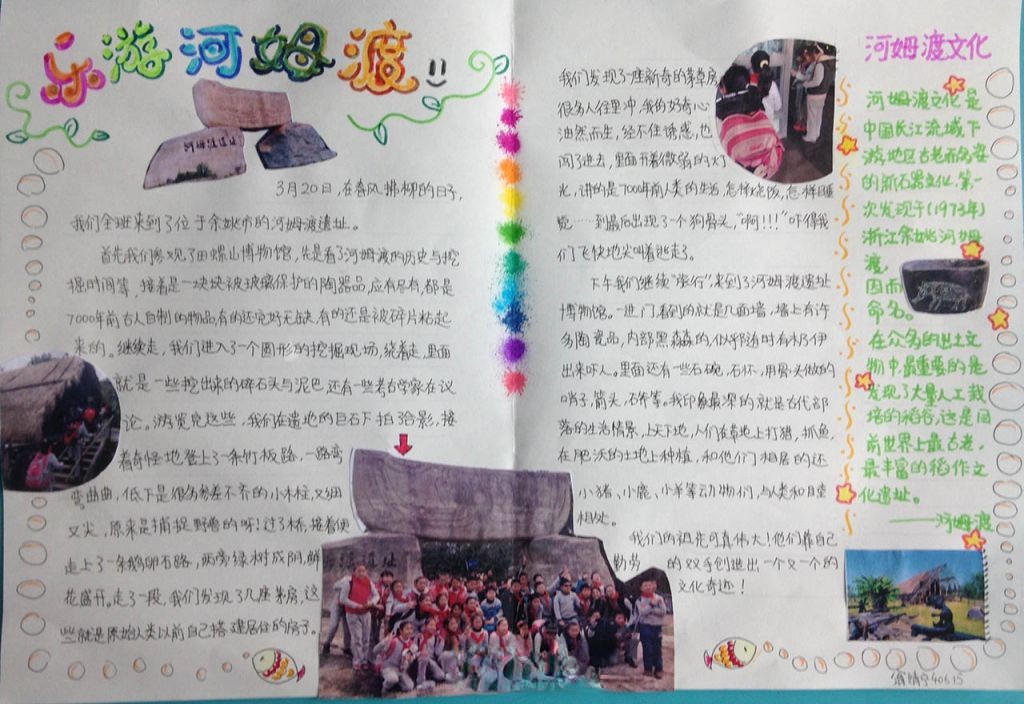 乐游河姆渡
河姆渡遗址
3月20日,在春风拂柳的日子,
我们全班来到了位于余姚市的河姆渡遗址。
首先我们参观了田螺山博物馆,先是看了河姆渡的历史与挖
掘时间等,接着是一块块被玻璃保护的陶器品,应有尽有,都是
7000年前古人自制的物品有的还完好无缺,有的还是被碎片粘起
来的。继续走,我们进入了一个圆形的挖掘现场,绕着走,里面
就是一些挖出来的碎石头与泥巴,还有一些考古学家在议
论。游览完这些,我们在遗地的巨石下拍了合影,接
着奇怪地登上了一条竹板路,一路弯
弯曲曲,低下是很多参差不齐的小木桩,又细
又尖,原来是捕捉野兽的呀!过了桥,接着便
走上了一条鹅卵石路,两旁绿树成阴,鲜
花盛开。走了一段,我们发现了几座茅房,这
些就是原始人类以前自己搭建居住的房子。
遗址
我们发现了一座新奇的茅草房,
很多人往里冲,我的好奇心
油然而生,经不住诱惑,也
闯了进去,里面开着微弱的灯
光,讲的是7000年前人类的生活,怎样烧饭,怎样睡
觉……到最后出现了个狗骨头,“啊!!!”吓得我
们飞快地尖叫着逃走了。
下午我们继续“旅行”,来到了河姆渡遗址
博物馆。一进门看到的就是几面墙,墙上有许
多陶瓷品,内部黑森森的,似乎随时有木乃伊
出来吓人。里面还有一些石碗,石杯,用骨头做的
哨子,箭头,石斧等。我印象最深的就是古代部
落的生活情景,上天下地,人们在草地上打猎,抓鱼,
在肥沃的土地上种植,和他们相居的还
小猪、小鹿、小羊等动物们,人类和睦
相处。
我们的祖先可真伟大!他们靠自己
勤劳的双手创造出一个又一个的
文化奇迹!
河姆渡文化
河姆渡文化是
中国长江流域下
游地区古老而多姿
的新石器文化,第一
次发现于(1973年)
浙江余姚河姆
渡,
因而
命名。
在众多的出土文
物中,最重要的是
发现了大量人工栽
培的稻谷,这是目
前世界上最古老、
最丰富的稻作文
化遗址。
——河姆渡
40615